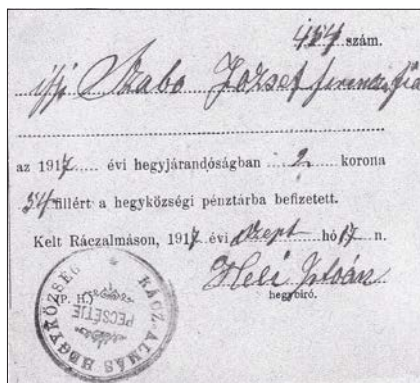 454 szám.
ifjú Szabo Jozsef ferencz fia
az 1917 évi hegyjárandóságban 2 korona
54 fillért a hegyközségi pénztárba befizetett.
Kelt Ráczalmáson, 1917 évi Szept hó 17 n.
István
(P. H.)
hegybíró.
RÁCZ-ALMÁS HEGYKÖZSÉG
PECSÉTJE